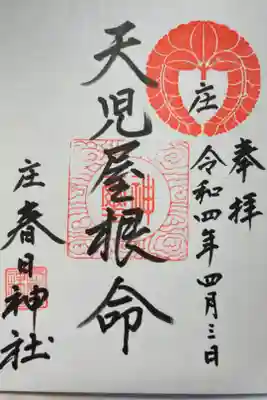 奉拝
令和四年四月三日
庄
天児屋根命
庄春日神社